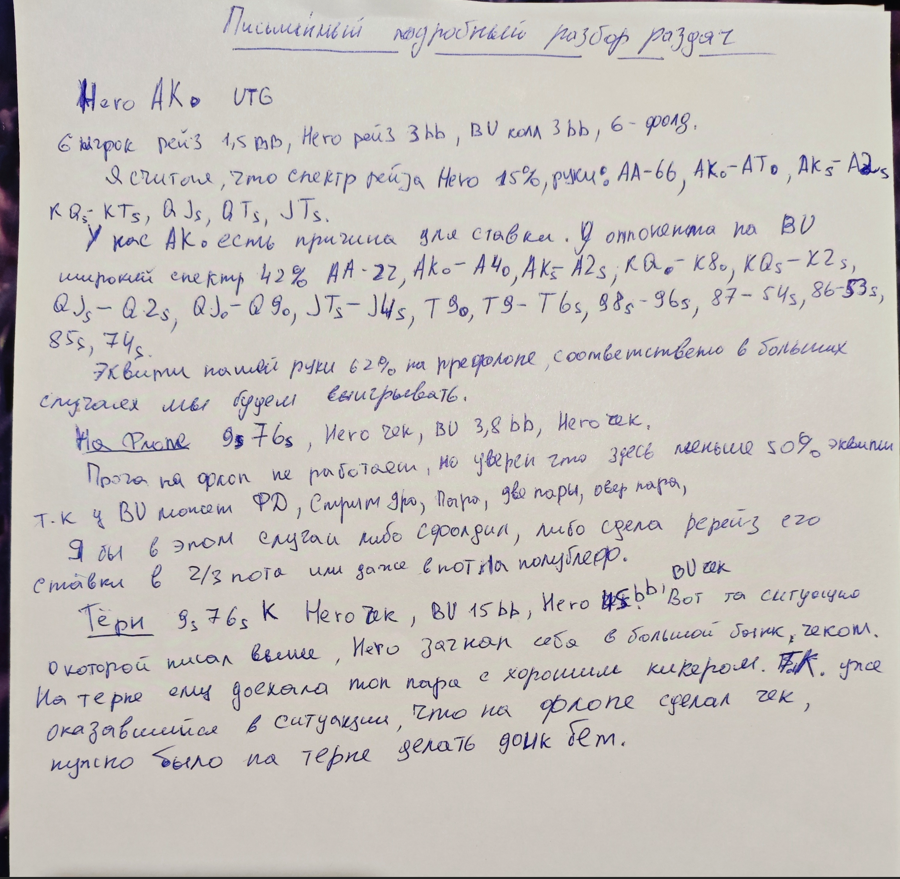 Письменный подробный разбор раздач
Hero AKo UTG
6 игрок рейз 1,5 ВВ, Hero рейз 3bb, BU колл 3bb, 6 - фолд.
Я считаю, что спектр рейза Hero 15%, руки: AA-66, AKo-ATo, AKs-A2s
KQs-KTs, QJs, QTs, JTs.
У нас AKo есть причина для ставки. У оппонента на BU
широкий спектр 42% AA-22, AKo-A4o, AKs-A2s, KQo-K8o, KQs-K2s,
QJs-Q2s, QJo-Q9o, JTs-J4s, T9o, T9-T6s, 98s-96s, 87-54s, 86-53s,
85s, 74s.
Эквити нашей руки 62% на префлопе, соответствено в больших
случаях мы будем выигрывать.
На Флопе 9s76s, Hero чек, BU 3,8bb, Hero чек.
Прога на флоп не работает, но уверен что здесь меньше 50% эквити
т.к у BU может ФД, Стрит дро, две пары, овер пара,
Я бы в этом случаи либо сфолдил, либо сдела ререйз его
ставки в 2/3 пота или даже в пот на полублеф.
Тёрн 9s76sK Hero чек, BU 15bb, Hero bb, BU чек Вот та ситуацию
о которой писал выше, Hero загнал себя в большой банк, чеком.
На терне ему доехала топ пара с хорошим кикером. Т.К. уже
оказавшийся в ситуации, что на флопе сделал чек,
нужно было на терне делать донк бет.